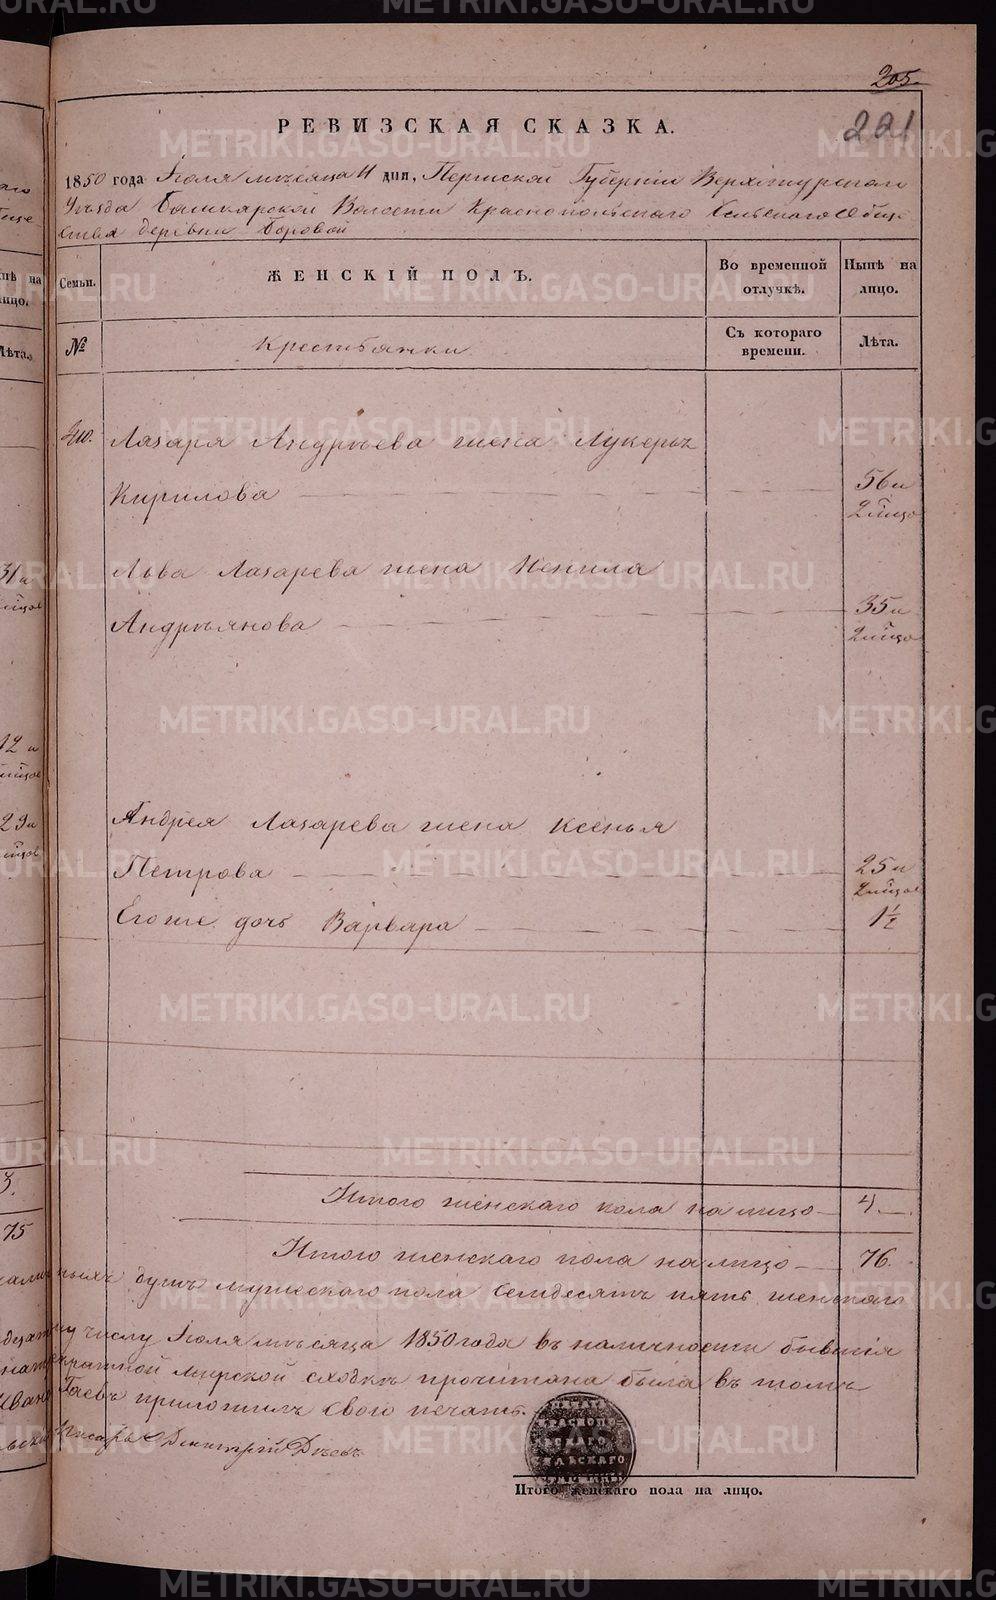 205.
221
РЕВИЗСКАЯ СКАЗКА.
1850 года Іюля мѣсяца 11 дня, Пермской Губерніи Верхотурскаго
Уѣзда Башкарской Волости Краснопольскаго Сельскаго Обще
ства деревни Боровой
Семьи.
ЖЕНСКІЙ ПОЛЪ.
Во временной отлучкѣ.
Нынѣ на лицо.
№
Крестьянки
Съ котораго времени.
Лѣта.
210.
Лазаря Андрѣева жена Лукерья
Кирилова
56 и
Льва Лазарева жена Ненила
Андрѣянова
35 и
Андрея Лазарева жена Ксенья
Петрова
25 и
Егоже дочь Варвара
1½
Итого женскаго пола на лицо
4
Итого женскаго пола на лицо
76.
душъ мужескаго пола семдесятъ пять женскаго
числу Іюля мѣсяца 1850 года въ наличности бывшія
Мирской сходкѣ прочитана была въ томъ
приложилъ свою печать.
Писарь Дмитрій
Итого женскаго пола на лицо.
METRIKI.GASO-URAL.RU